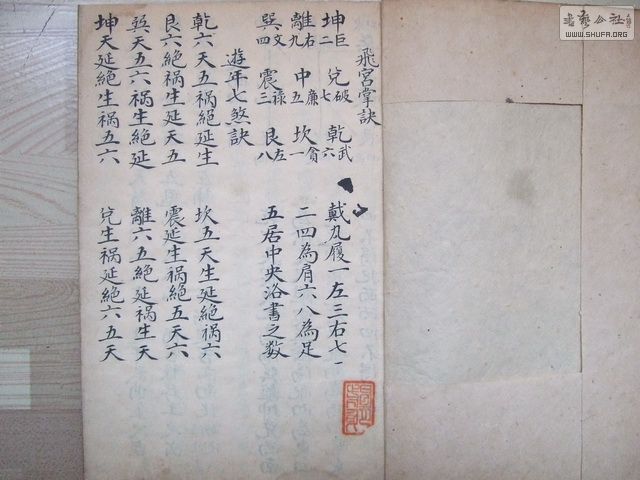 飛宮掌訣
坤二巨 兌七破 乾六武 戴九履一左三右七
離九右 中五廉 坎一貪 二四為肩六八為足
巽四文 震三祿 艮八左 五居中央洛書之数
遊年七煞訣
乾六天五禍絕延生 坎五天生延絕禍六
艮六絕禍生延天五 震延生禍絕五天六
巽天五六禍生絕延 離六五絕延禍生天
坤天延絕生禍五六 兌生禍延絕六五天
書藝公社
WWW.SHUFA.ORG